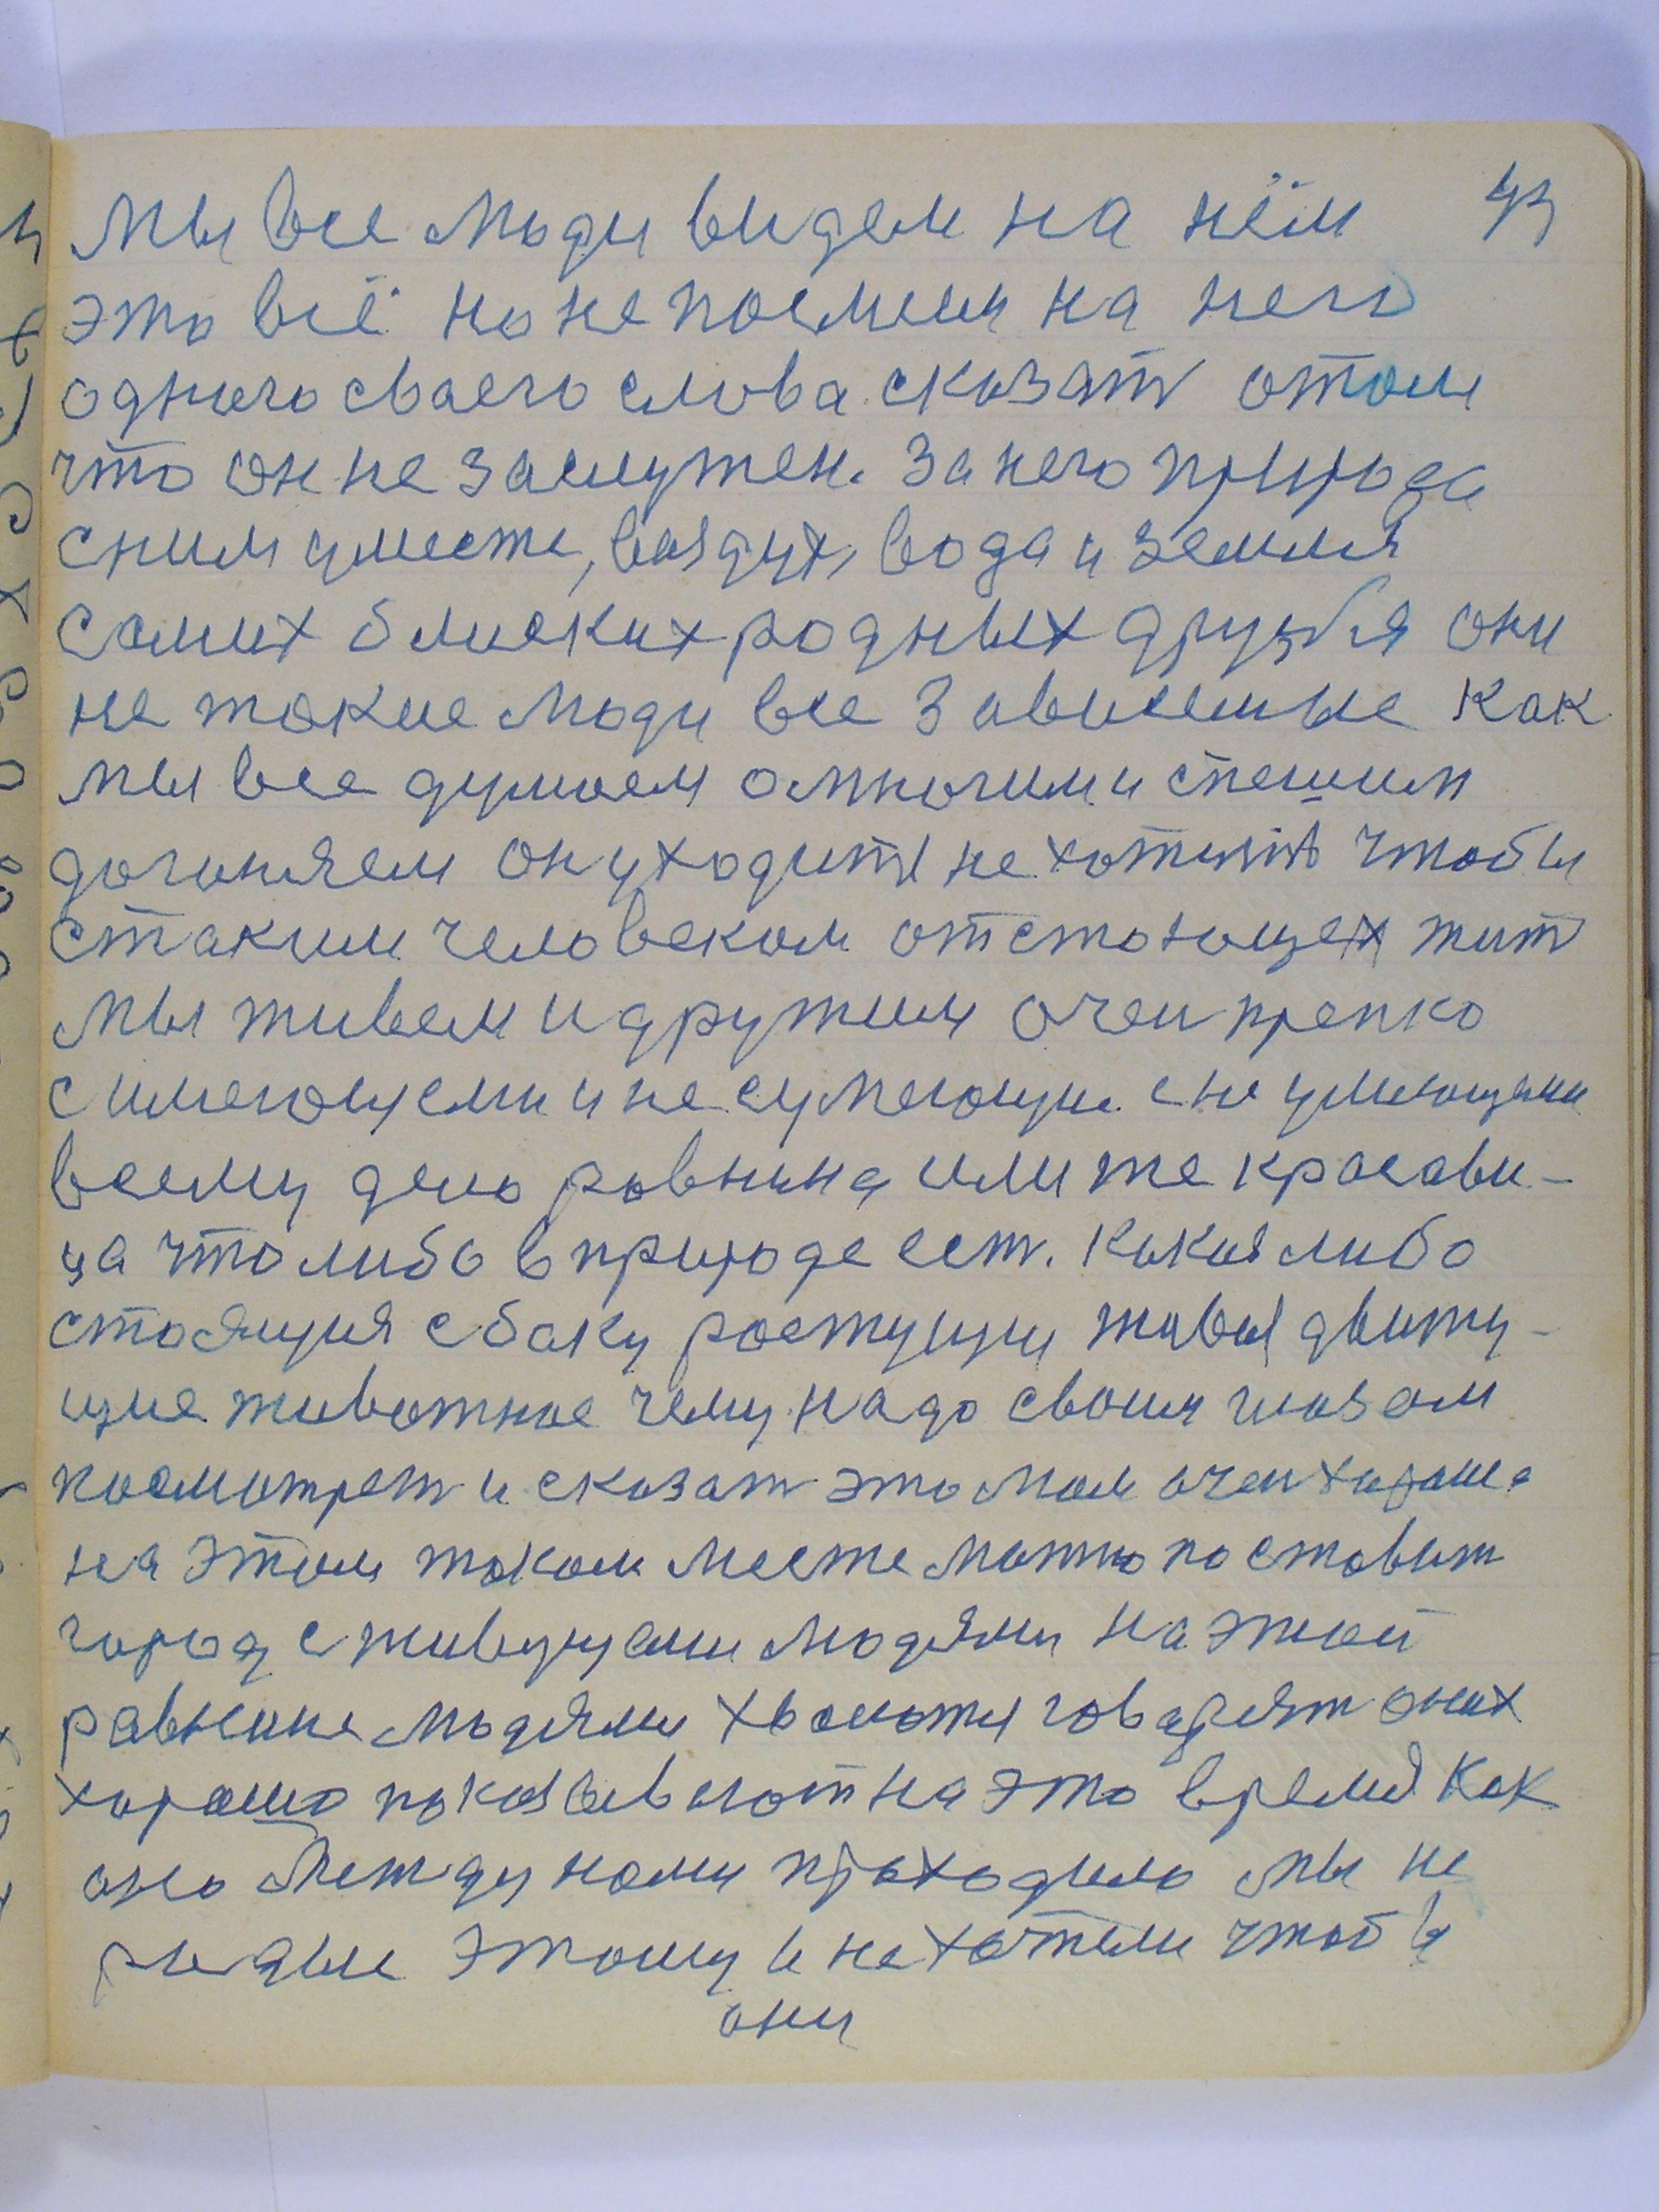 мы все люди видем на нём 43
это всё но не посмеим на него
одного сваего слова сказатъ отом
что он не заслужен. за него природа
сним умести, ваздух, вода и земля
самих близких родных друзья они
не такие люди все зависемые как
мы все думаем о многим и спешим
догоняем он уходить не хотить чтобы
стаким человеком отстающем жит
мы живем и дружим очен крепко
с имеющеми и не сумеющи. с не умеющими
всему дело ровнина или же красави-
ца что либо в природе ест. какая либо
стоящия сбаку ростущии живыя движу-
щие животное чему надо своим глазом
посмотрет и сказат это мол очен хароше
на этом таком месте можно поставит
город с живущеми людями на этой
равнине людями хвалится говарят оних
харошо показывают на это время как
оно между нами праходило мы не
рады этому и не хотели чтобы
они